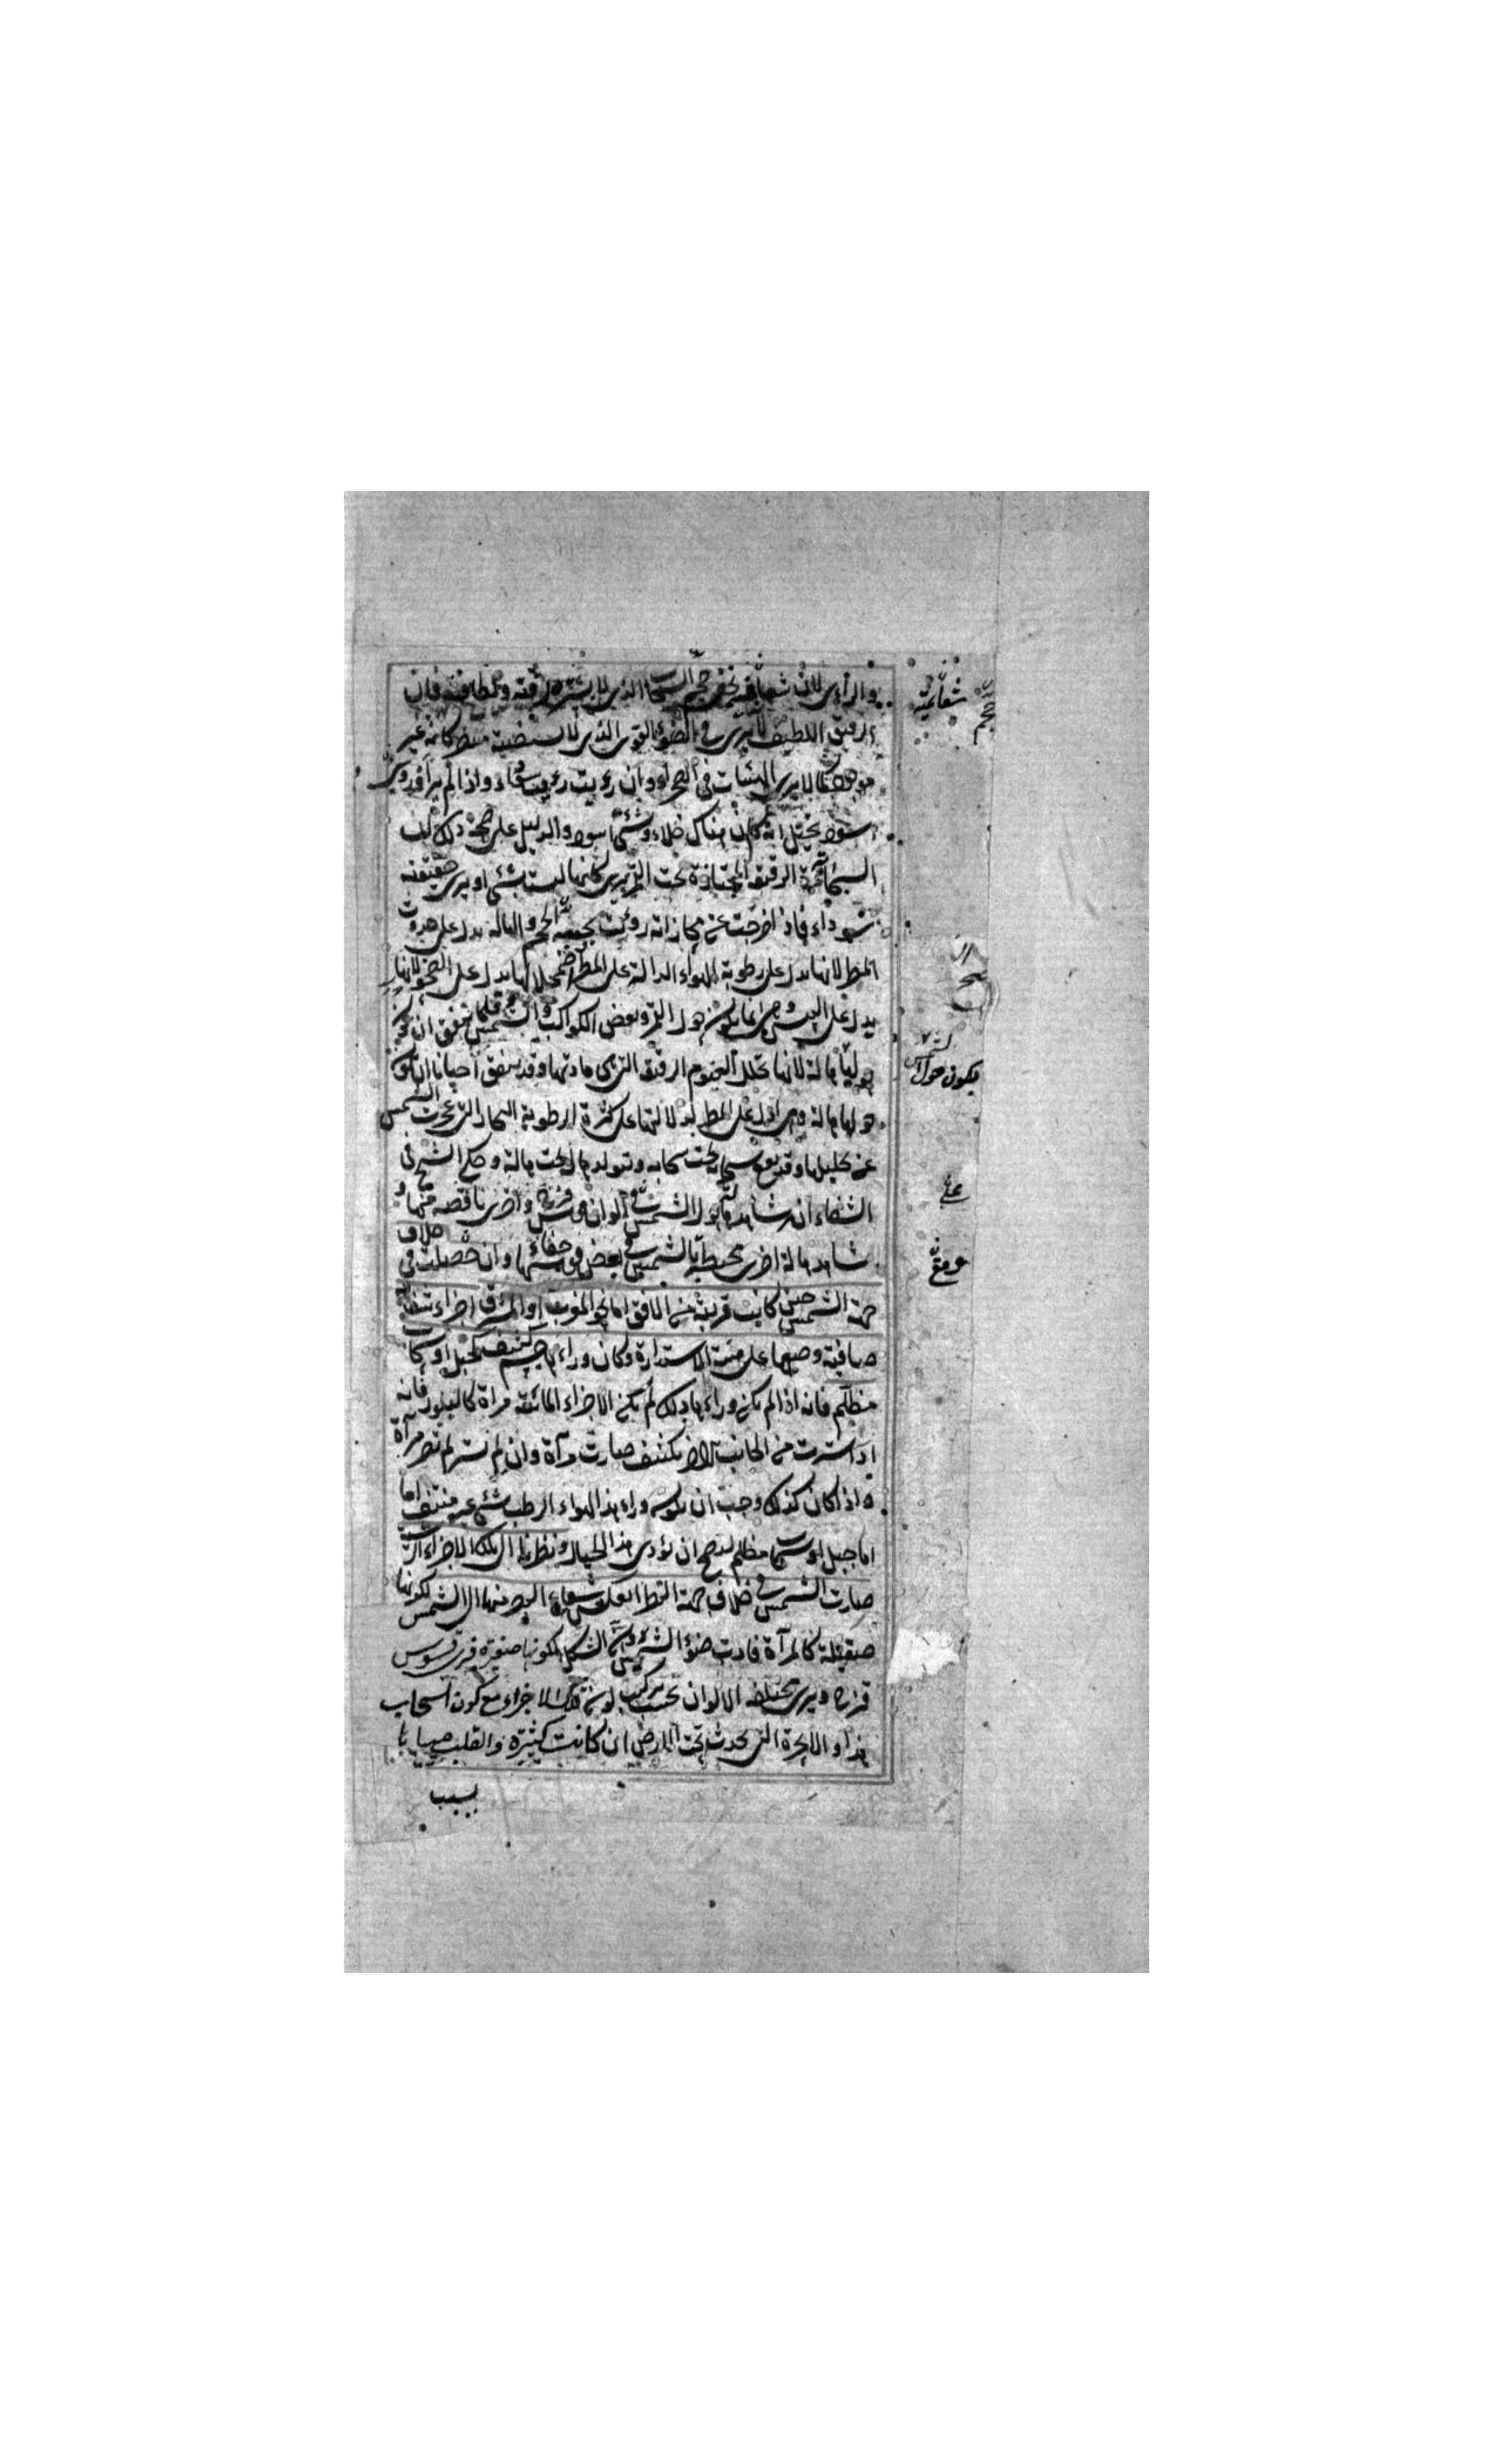 والرائى لان شعاعه يخفى حجم السحاب الذى لا يستره لرقته ولطافته فان
الرقيق اللطيف لا يرى فى الضوء القوى الذى لا يستضىء كانه غير
موجود كما لا يرى الهبئات فى الصحراء وان رؤيت رؤيت سوداء واذا لم ير او روى
اسود تخيل انه كان هناك خلاء وشئ اسود والدليل على صحة ذلك ان
السحابة الرقيقة المجتازة تحت القمر يرى كانها ليست بشئ او يرى حقيقته
سوداء فاذا خرجت عن محازاته رؤيت الحجم والهالة يدل على حدوث
المطر لانها يدل على رطوبة الهواء الدالة على المطر واضمحلالها يدل على الصحو لانها
يدل على اليبس وهى انما يكون حول القمر وبعض الكواكب والشمس قلما يتفق ان يكون
حوليها هالة لانها تحلل الغيوم الرقيقة التى هى مادتها وقد يتفق احيانا ان يكون
حولها هالة وهى ادل على المطر لدلالتها على كثرة الرطوبة البخار التى عجزت الشمس
عن تحليلها وقد يقع سحابة تحت سحابة وتتولد هالة تحت هالة وحكى الشيخ فى
الشفاء انه شاهد هالة حول الشمس فى الوان قوس قزح واخرى ناقصة منها و
شاهد هالة اخرى محيطة بالشمس فى بعض قوسها خفاء وان حصلت فى خلاف
جهة الشمس حين كانت قريبة من الافق اما نحو المغرب او المشرق اجزاء شفافة
صافية وضعها على هيئة الاستدارة وكان وراءها جسم كثيف كجبل او سحاب
مظلم فانه اذا لم يكن وراءها ذلك لم يكن الاجزاء المائية مرآة كالبلور فانه
اذا سترت من الجانب الاخر بكثيف صارت مرآة وان لم تستر لم تصر مرآة
واذا كان كذلك وجب ان يكون وراء هذا الهواء الرطب شئ غير مشف اما
اما جبل او سحاب مظلم ليصح ان يؤدى هذا الخيال ونظرنا الى تلك الاجزاء التى
صارت الشمس فى خلاف جهة النظر انعكس شعاع البصر منها الى الشمس لكونها
صقيلة كالمرآة فادت ضوء الشمس دون الشكل لكونها صغيرة فرى قوس
قزح ويرى مختلفة الالوان بحسب تركيب لون تلك الاجزاء مع كون السحاب
هذا والابخرة التى تحدث تحت الارض ان كانت كثيرة وانقلب مياها
بسبب
يكون حول الشمس